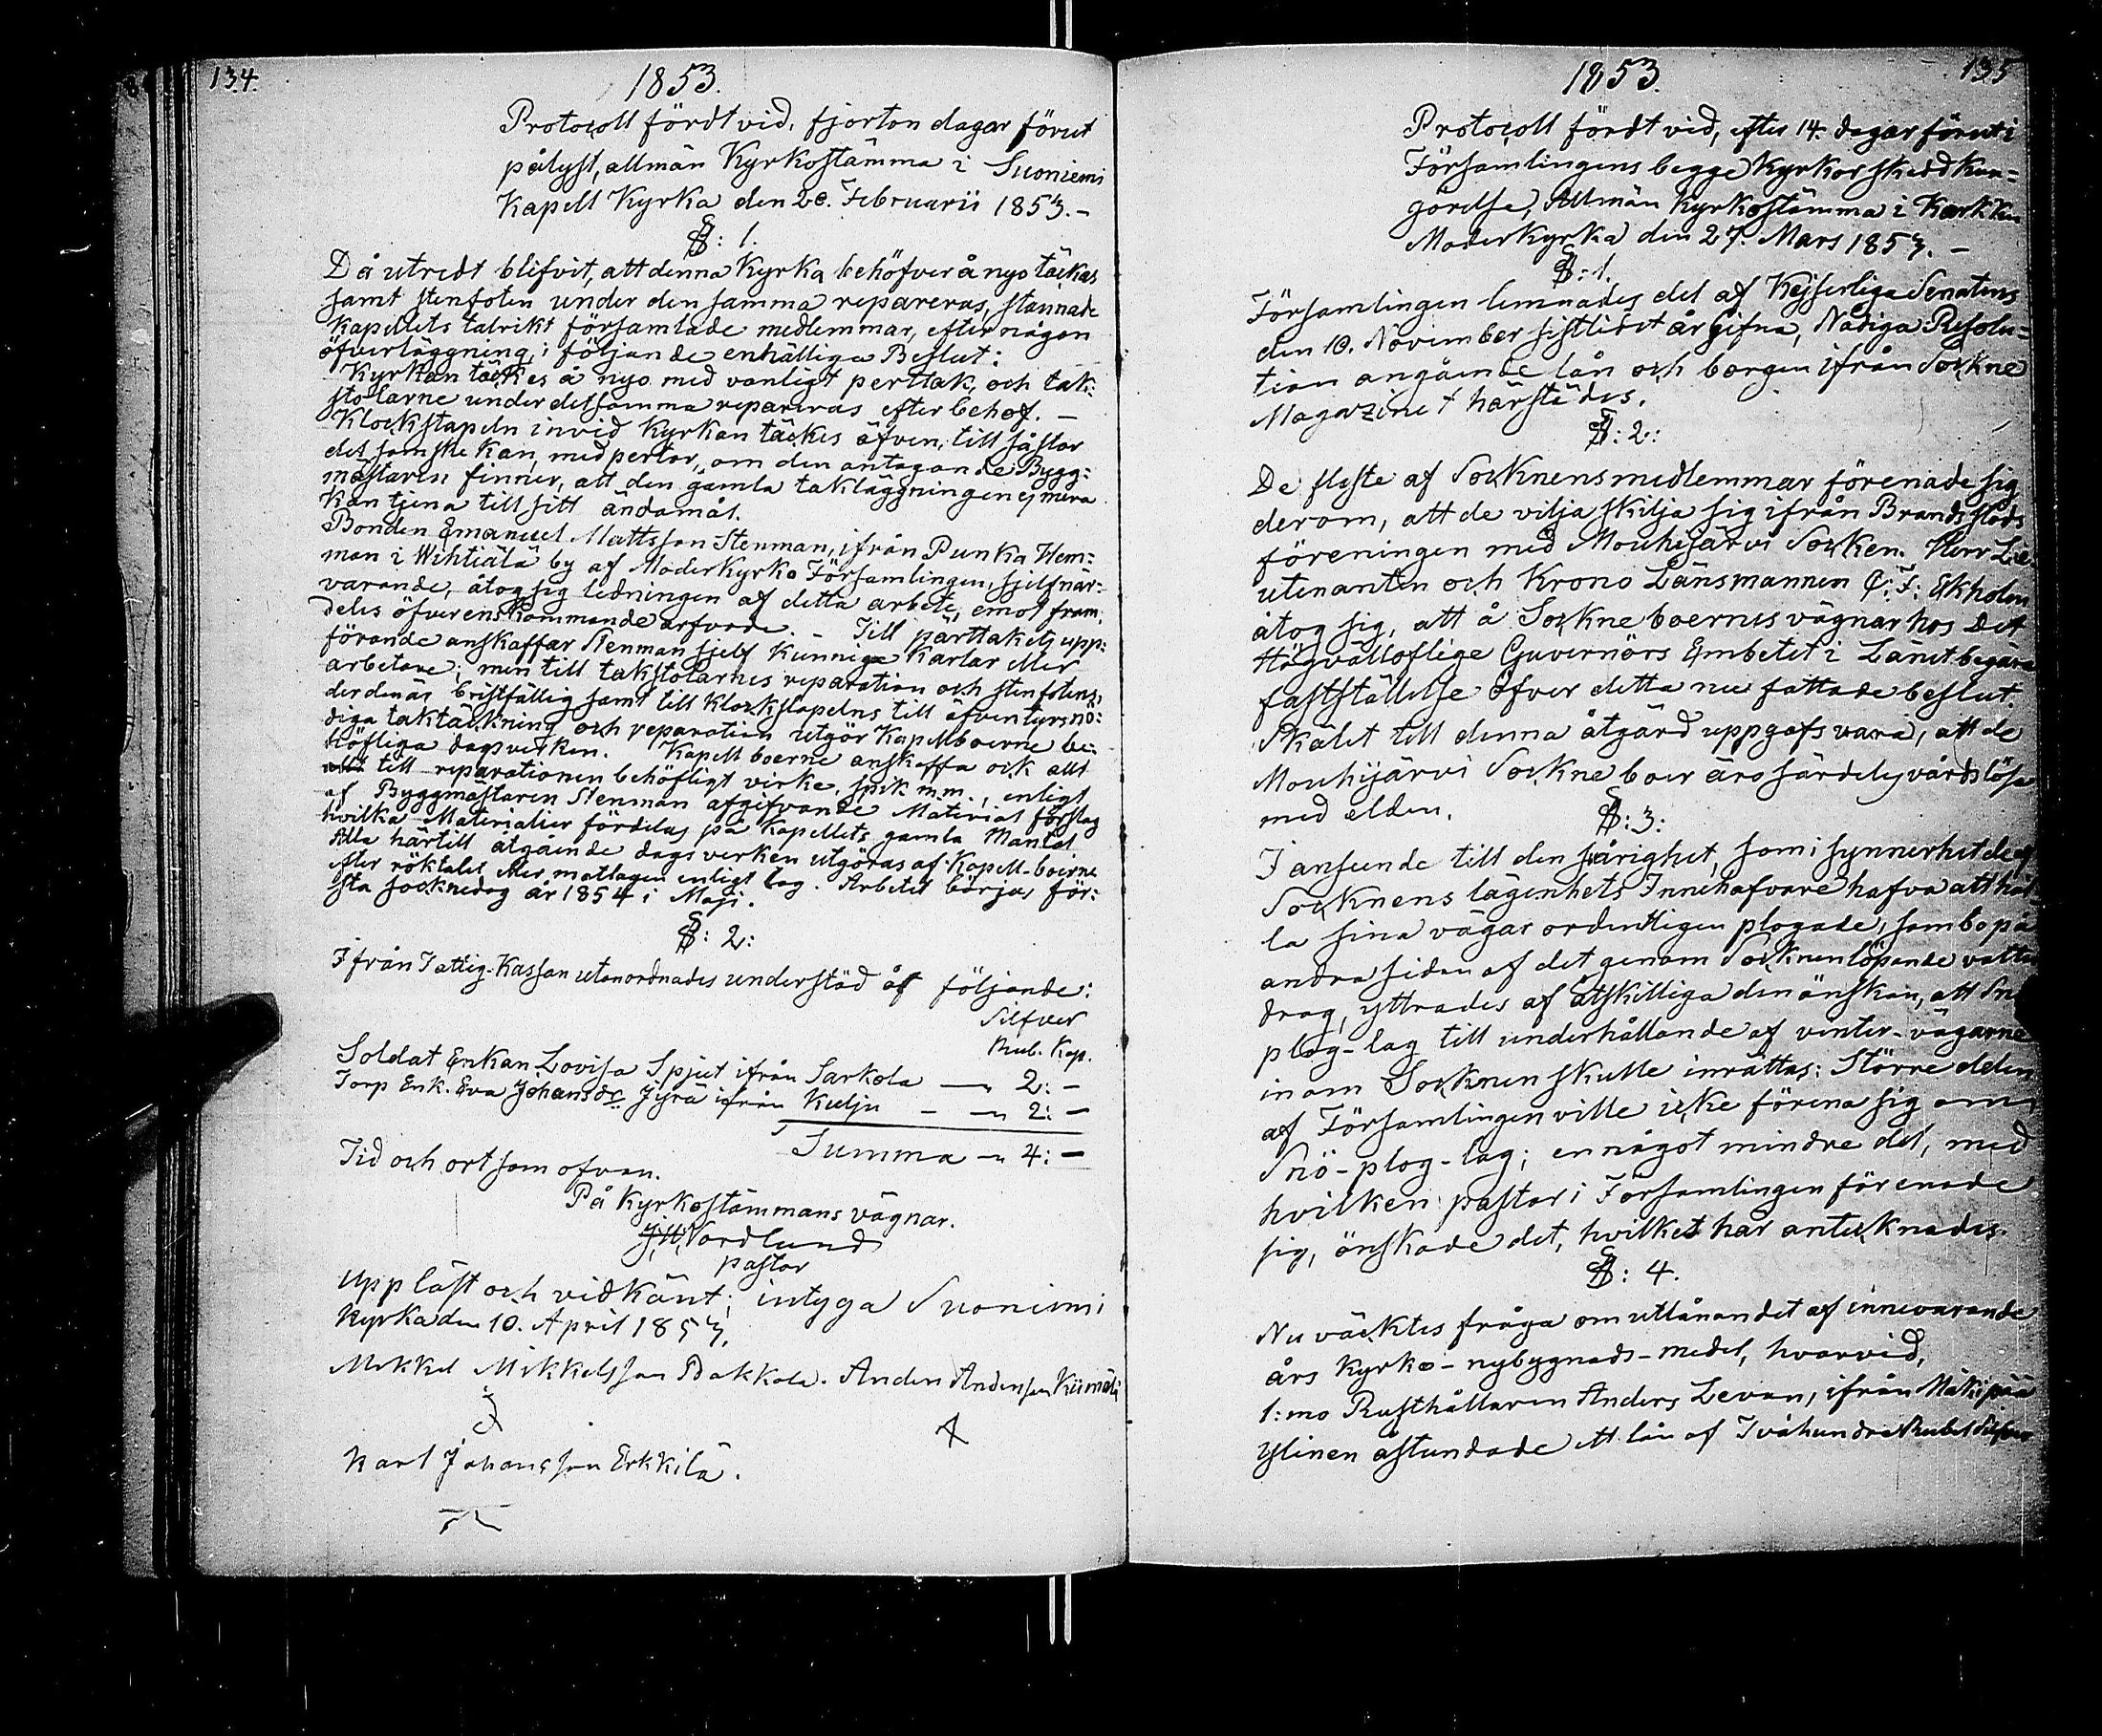 134.
1853.
Protocoll fördt vid, fjorton dagar förut
pålyst, allmän Kyrkostämma i Suoniemi
Kapell Kyrka den 20. Februarii 1853.-
§: 1.
Då utredt blifvit, att denna Kyrka behöfver å nyo täckas
samt stenfoten under densamma repareras, stannade
Kapellets talrikt församlade medlemmar, efter någon
öfverläggning, i följande enhälliga Beslut:
Kyrkan täckes å nyo med vanligt perttak, och tak-
stolarne under detsamma repareras efter behof. -
Klockstapeln invid Kyrkan täckes äfven, till så stor
del som ske kan, med pertor, om den antagande Bygg-
mästaren finner, att den gamla takläggningen ej mera
kan tjena till sitt ändamål.
Bonden Emanuel Mattsson Stenman, ifrån Punka Hem-
man i Wihtiälä by af Moderkyrko Församlingen, sjelfnär-
varande, åtog sig ledningen af detta arbete, emot fram-
deles öfverenskommande arfvode. - Till pärttakets upp-
förande anskaffar Stenman sjelf kunniga Karlar eller
arbetare; men till takstolarnes reparation och stenfotens,
der den är bristfällig samt till klockstapelns till äfventyrs nö-
diga taktäckning och reparation utgör Kapellboerne be-
höfliga dagsverken. Kapellboerne anskaffa ock allt
till reparationen behöfligt virke, spik m.m., enligt
af Byggmästaren Stenman afgifvande Material förslag
hvilka Materialier fördelas på Kapellets gamla Mantal
Alla härtill åtgående dagsverken utgöras af Kapell-boerne
efter röktalet eller matlagen enligt lag. Arbetet börjas för-
sta socknedag år 1854 i Maji.
§: 2:
Ifrån Fattig-Kassan utanordnades understöd åt följande:
Silfver
Rub. Kop.
Soldat Enkan Lovisa Spjut ifrån Sarkola — 2: -
Torp Enk. Eva Johansdr Jyrä ifrån Kulju - — 2: -
Summa — 4: -
Tid och ort som ofvan.
På Kyrkostämmans vägnar.
Nordlund
pastor
Uppläst och vidkänt; intyga Suoniemi
Kyrka den 10. April 1853.
Mikkel Mikkelsson Pakkala. Anders Andersson Kiimala
Karl Johansson Erkkilä.
135
1853.
Protocoll fördt vid, efter 14. dagar förut i
Församlingens begge Kyrkor skedd kun-
görelse, Allmän Kyrkostämma i Karkku
Moderkyrka den 27. Mars 1853. -
§: 1.
Församlingen lemnades del af Kejserliga Senatens
den 10. November sistlidet år gifna, Nådiga Resolu-
tion angående lån och borgen ifrån Sockne
Magazinet härstädes.
§: 2:
De fleste af Socknens medlemmar förenade sig
derom, att de vilja skilja sig ifrån Brandstods
föreningen med Mouhijärvi Socken. Herr Lie-
utenanten och Krono Länsmannen C: F: Ekholm
åtog sig, att å Sockneboernes vägnar hos Det
Högvällofliga Guvernörs Embetet i Länet begära
fastställelse öfver detta nu fattade beslut.
Skälet till denna åtgärd uppgafs vara, att de
Mouhijärvi Sockneboer äro särdeles vårdslösa
med elden.
§: 3:
I anseende till den svårighet, som i synnerhet de af
Socknens lägenhets Innehafvare hafva att hål-
la sina vägar ordentligen plogade, som bo på
andra sidan af det genom Socknen löpande vatten
drag, yttrades af åtskilliga den önskan, att Snö
plog-lag till underhållande af vinter-vägarne
inom Socknen skulle inrättas: Större delen
af Församlingen ville icke förena sig om
Snö-plog-lag; en något mindre del, med
hvilken pastor i Församlingen förenade
sig, önskade det, hvilket här antecknades.
§: 4.
Nu väcktes fråga om utlånandet af innevarande
års Kyrko-nybygnads-medel, hvarvid,
1:mo Rusthållaren Anders Levan, ifrån Mäkipää
Ylinen åstundade ett lån af Tvåhundra Rubel Silfver